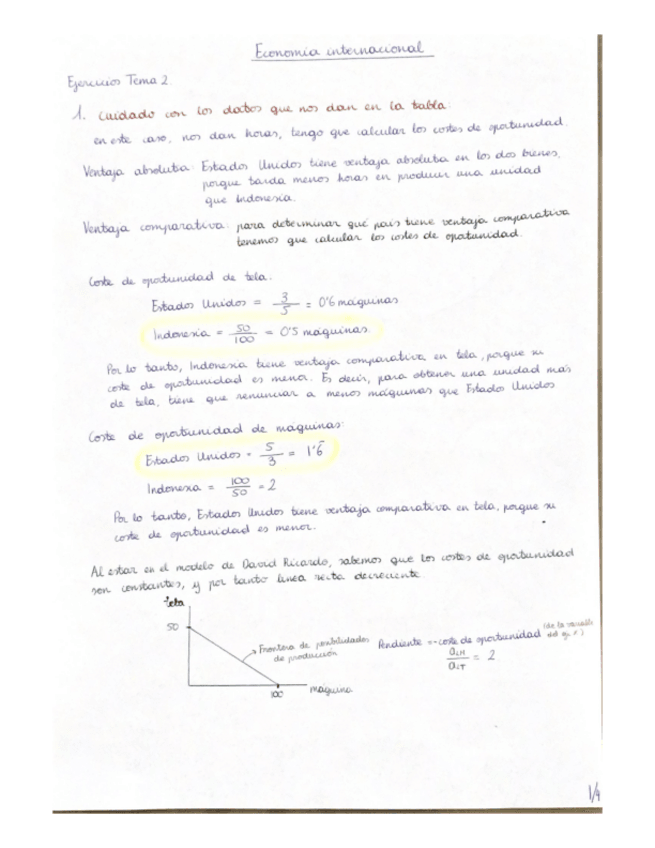 Economía internacional
Ejercicios Tema 2.
1. Cuidado con los datos que nos dan en la tabla:
en este caso, nos dan horas, tengo que calcular los costes de oportunidad.
Ventaja absoluta: Estados Unidos tiene ventaja absoluta en los dos bienes,
porque tarda menos horas en producir una unidad
que Indonesia.
Ventaja comparativa: para determinar qué país tiene ventaja comparativa
tenemos que calcular los costes de oportunidad.
Coste de oportunidad de tela:
Estados Unidos = 3/5 = 0'6 máquinas
Indonesia = 50/100 = 0'5 máquinas.
Por lo tanto, Indonesia tiene ventaja comparativa en tela, porque su
coste de oportunidad es menor. Es decir, para obtener una unidad más
de tela, tiene que renunciar a menos máquinas que Estados Unidos
Coste de oportunidad de máquinas:
Estados Unidos = 5/3 = 1'6
Indonexa = 100/50 = 2
Por lo tanto, Estados Unidos tiene ventaja comparativa en tela, porque su
coste de oportunidad es menor.
Al estar en el modelo de David Ricardo, sabemos que los costes de oportunidad
son constantes, y por tanto línea recta decreciente.
tela
50
Frontera de posibilidades
de producción
100
máquina
Pendiente = -coste de oportunidad (de la variable
del eje x)
aLM/aLT = 2
1/9